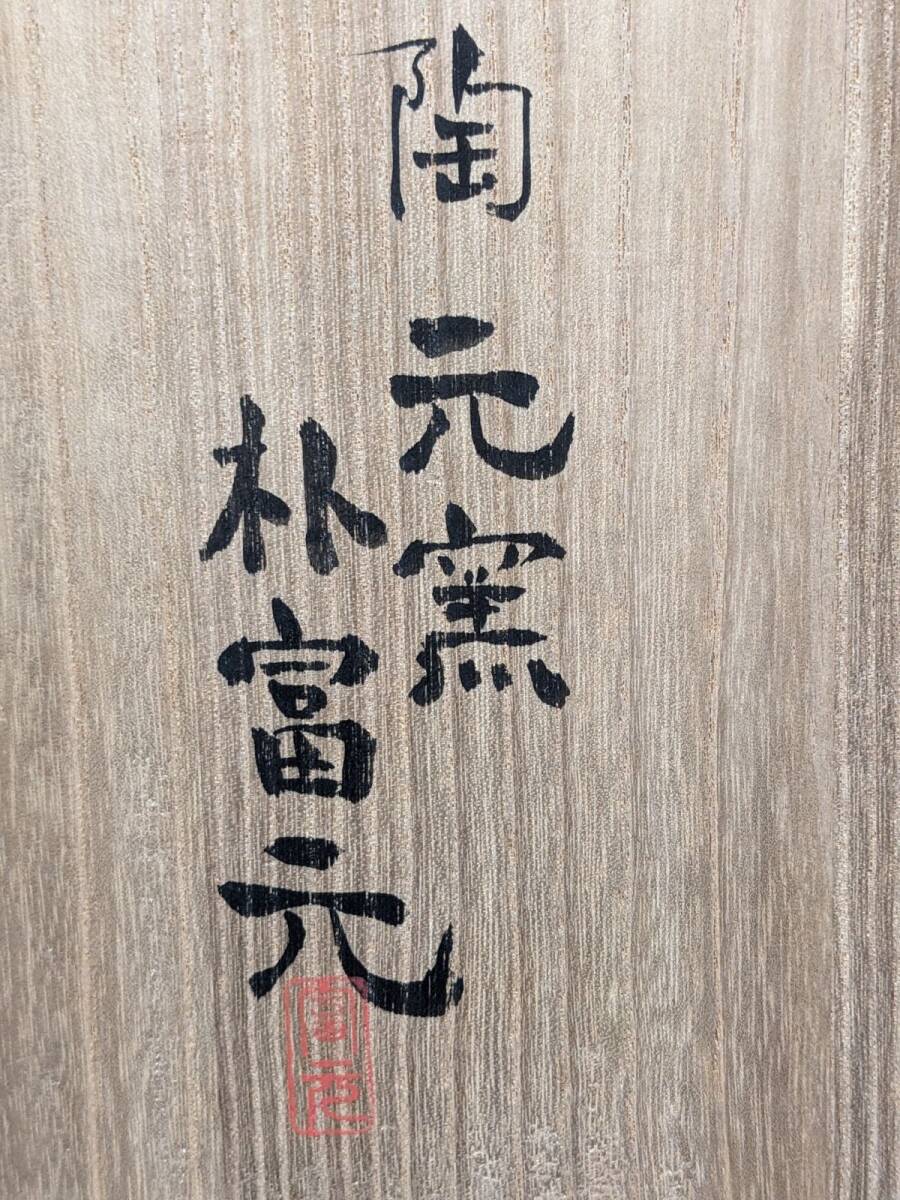 陶元窯
朴富元
富元